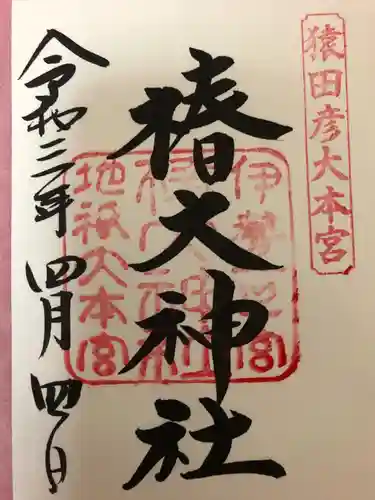 猿田彦大本宮
椿大神社
伊勢一之宮
地祇大本宮
令和三年四月四日